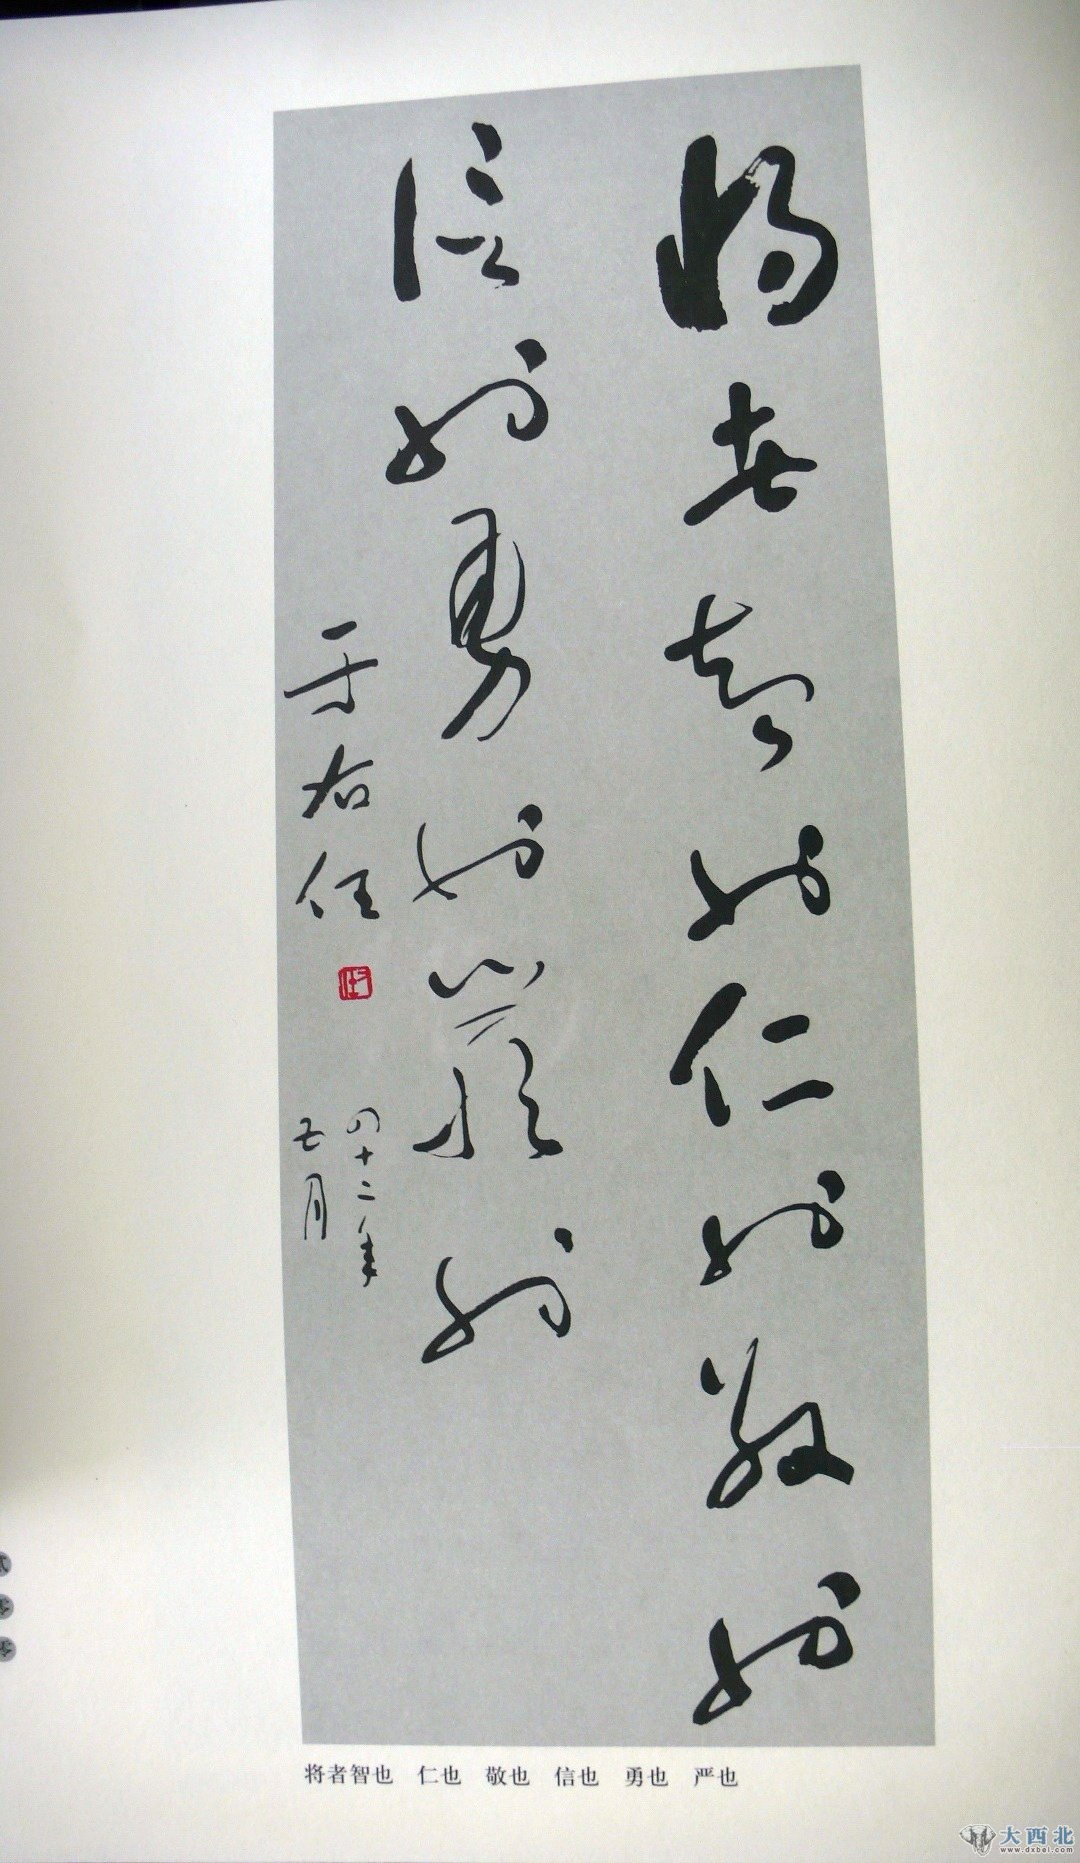 将者智也仁也敬也
信也勇也严也
于右任
四十二年
五月
将者智也 仁也 敬也 信也 勇也 严也
贰零零
大西北
www.dxbei.com